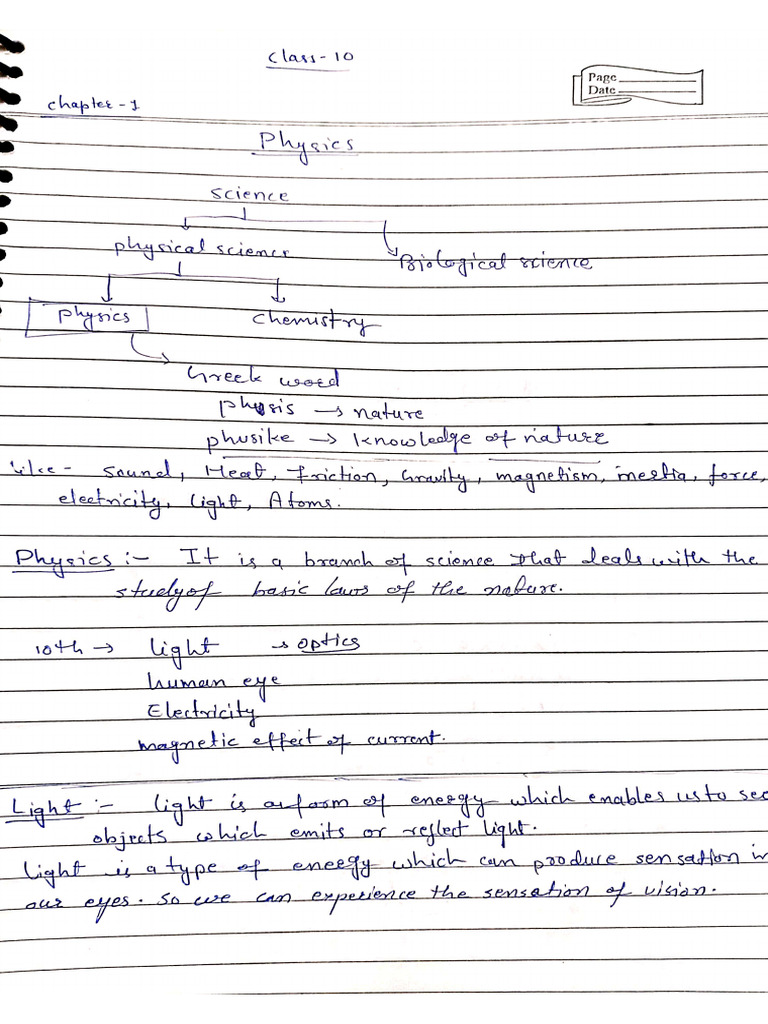 Class-10
Page
Date
Chapter-1
Physics
Science
physical science
Biological science
Physics
Chemistry
Greek word
physis → nature
phusike → knowledge of nature
like - Sound, Heat, Friction, Gravity, magnetism, inertia, force,
electricity, Light, Atoms.
Physics :- It is a branch of science that deals with the
study of basic laws of the nature.
10th → light → optics
human eye
Electricity
magnetic effect of current.
Light :- light is a form of energy which enables us to see
objects which emits or reflect light.
Light is a type of energy which can produce sensation in
our eyes. So we can experience the sensation of vision.